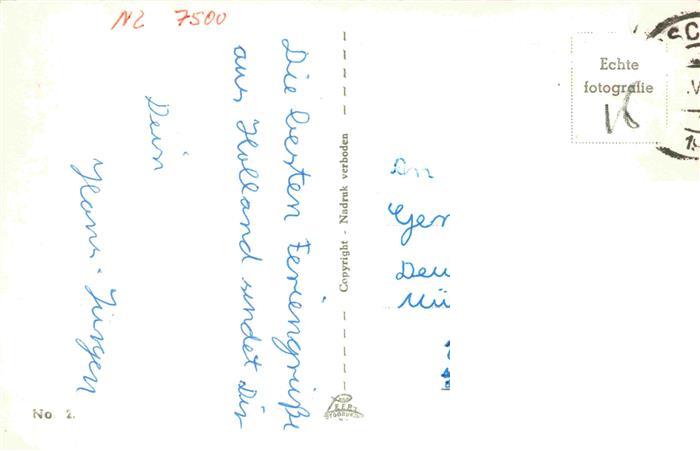 NL 7500
Die besten Feriengrüße
aus Holland sendet Dir
Dein
Hans-Jürgen
Copyright - Nadruk verboden
Echte
fotografie
An
Ger
Deu
Mü
No. 2.